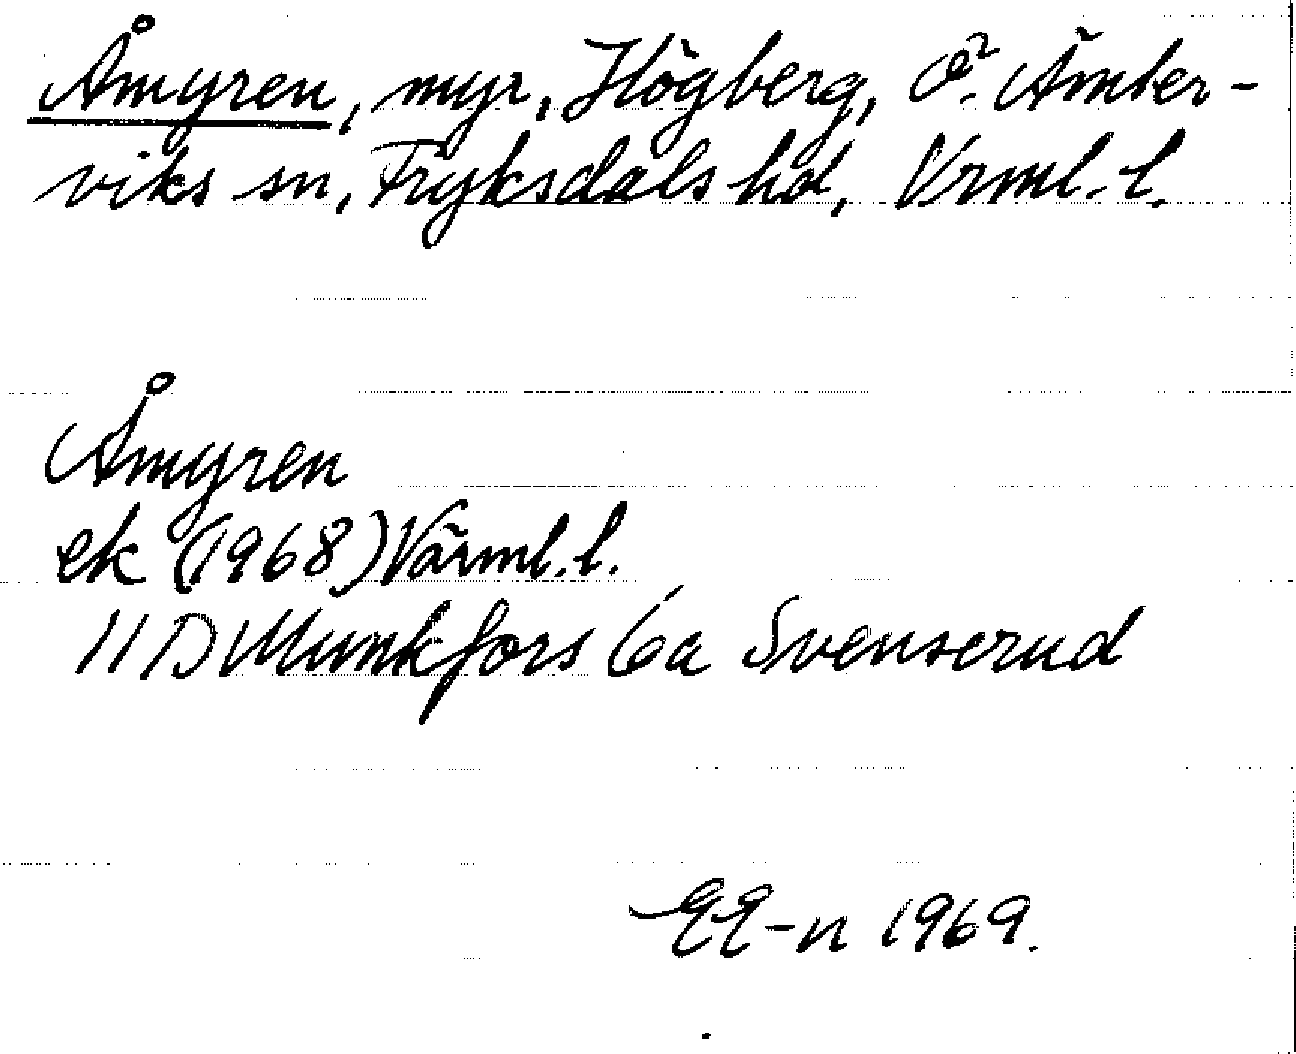 Åmyren, myr, Högberg, Ö. Ämter-
viks sn, Fryksdals hd, Vrml. l.
Åmyren
ek (1968) Värml. l.
11 D Munkfors 6a Svenserud
EE-n 1969.